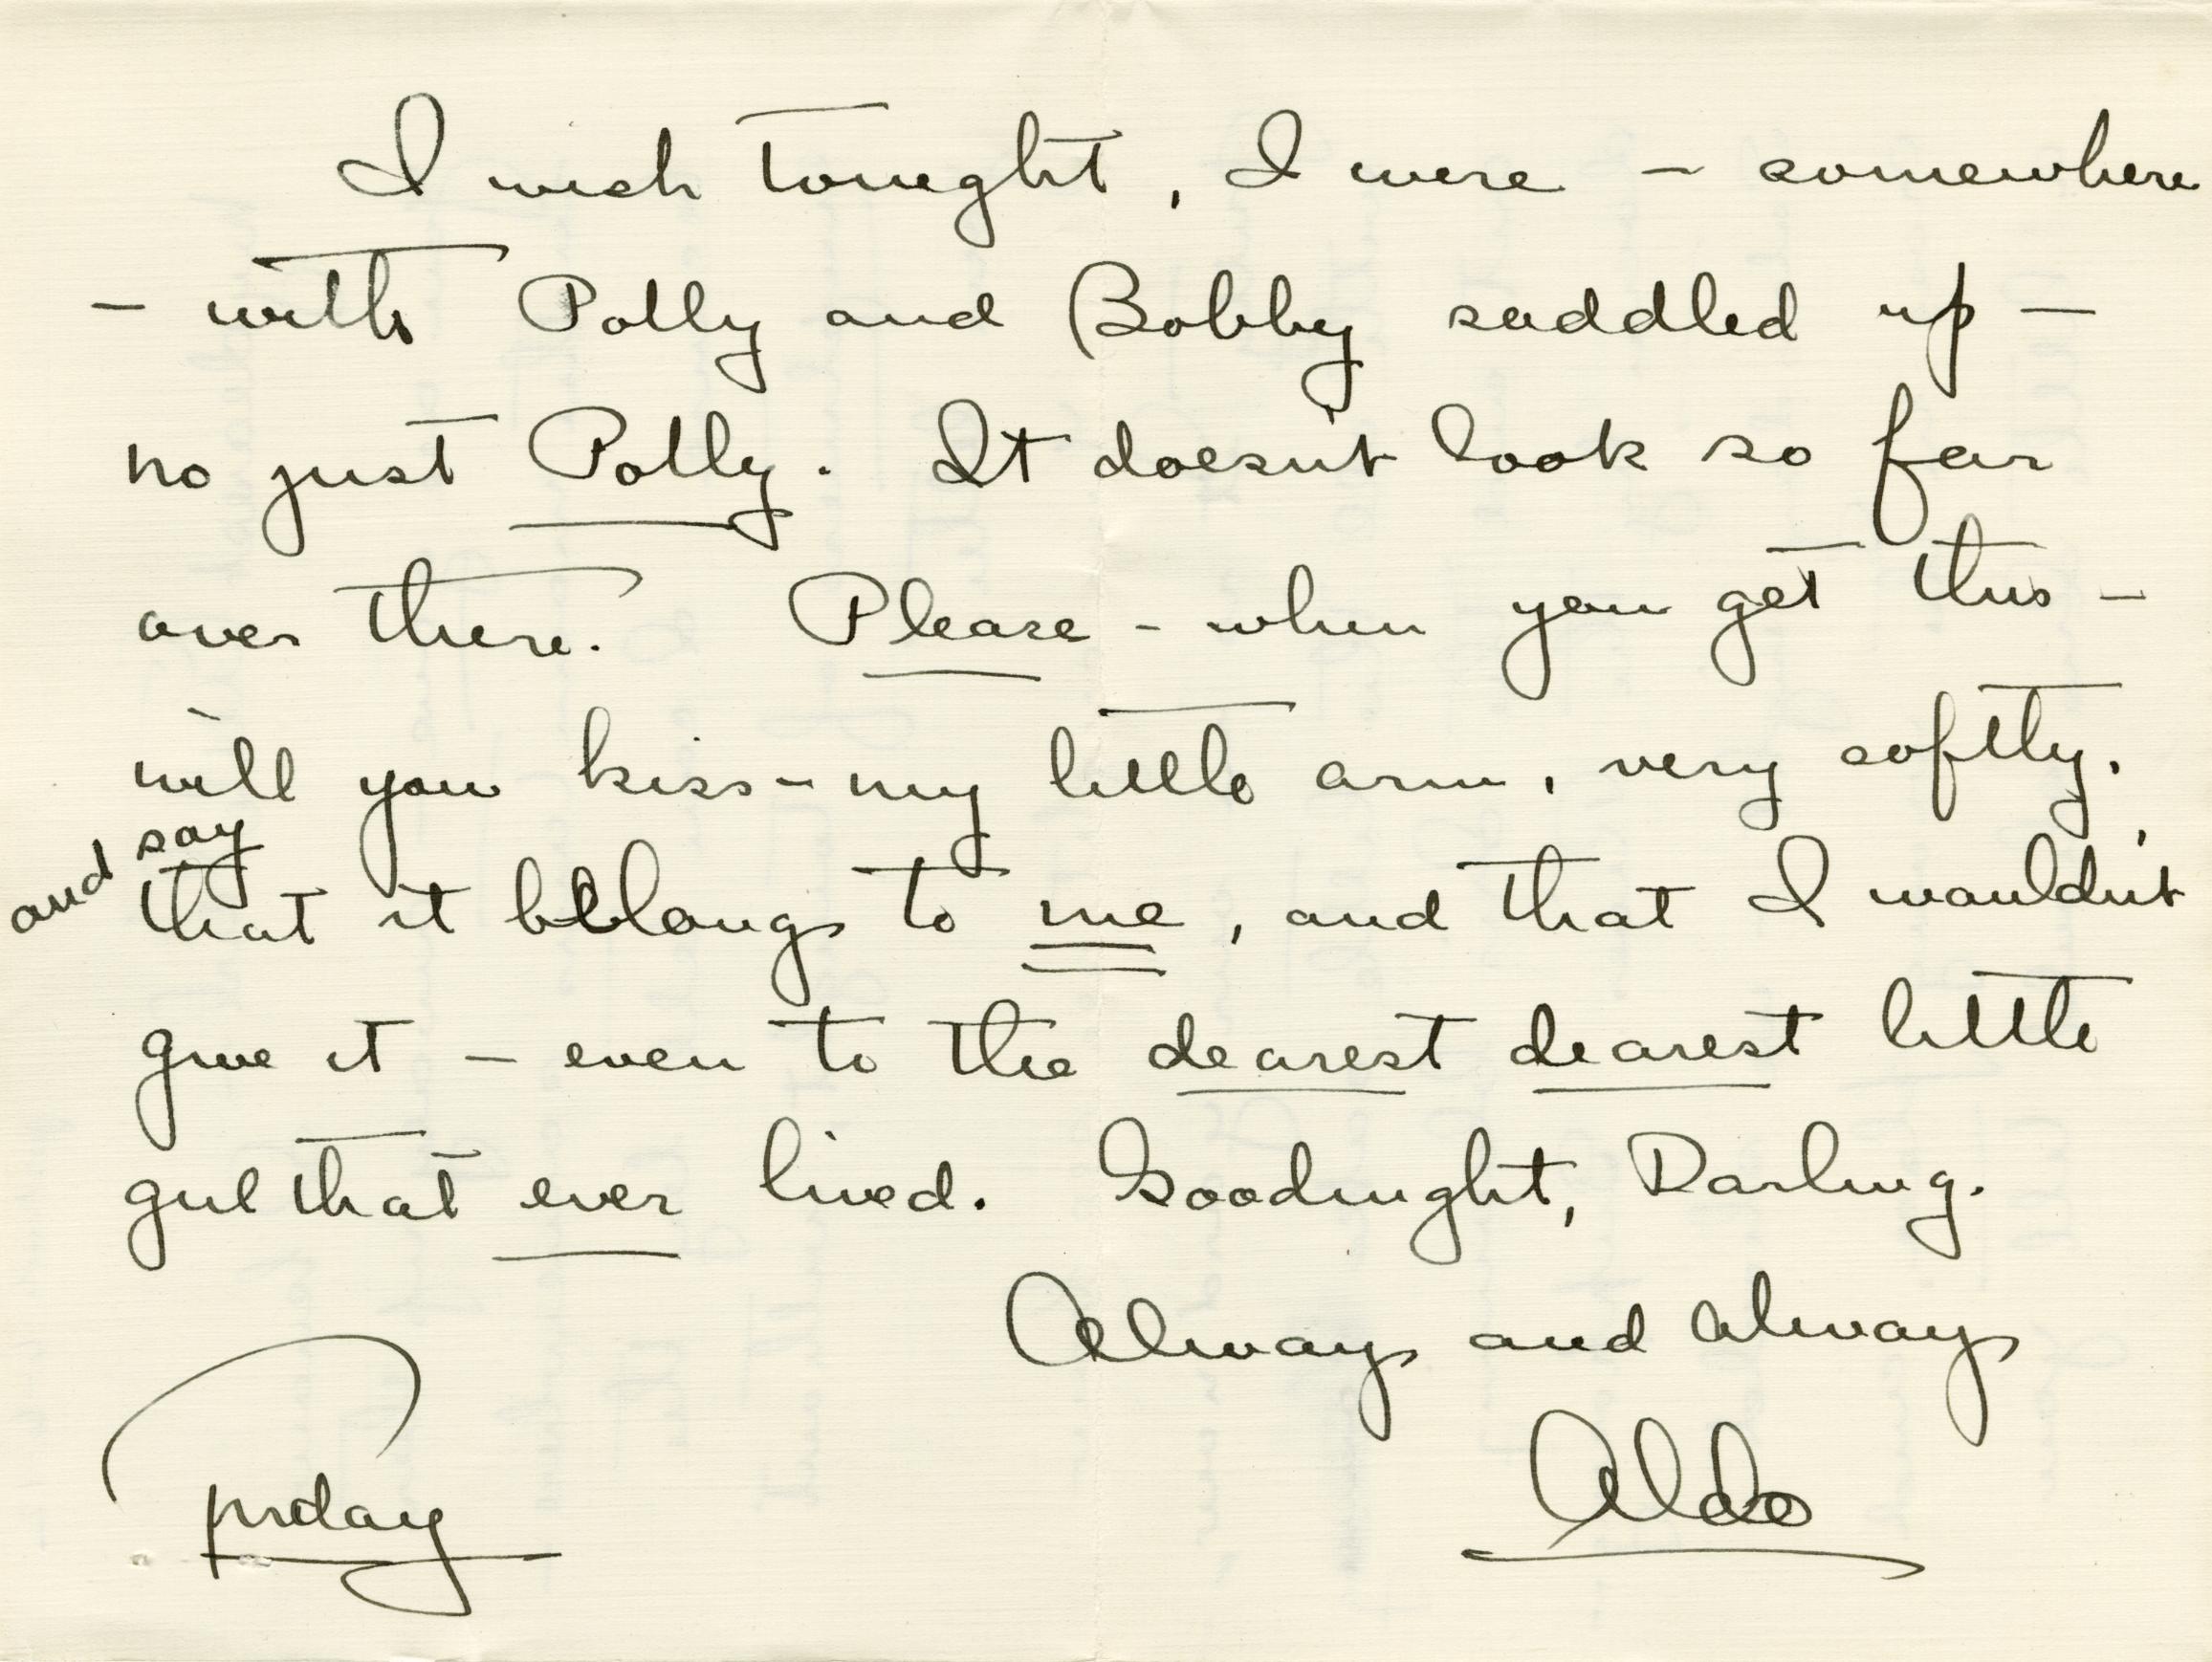 I wish tonight, I were - somewhere
- with Polly and Bobby saddled up -
no just Polly. It doesn't look so far
over there. Please - when you get this -
will you kiss - my little arm, very softly,
and say
that it belongs to me, and that I wouldn't
give it - even to the dearest dearest little
girl that ever lived. Goodnight, Darling.
Always and always
Aldo
Friday